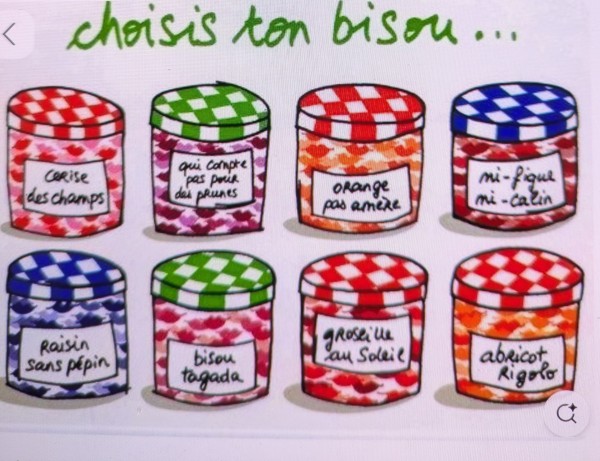 choisis ton bisou...
cerise
des champs
qui compte
pas pour
des prunes
orange
pas amère
mi-figue
mi-calin
Raisin
sans pépin
bisou
tagada
groseille
au soleil
abricot
Rigolo